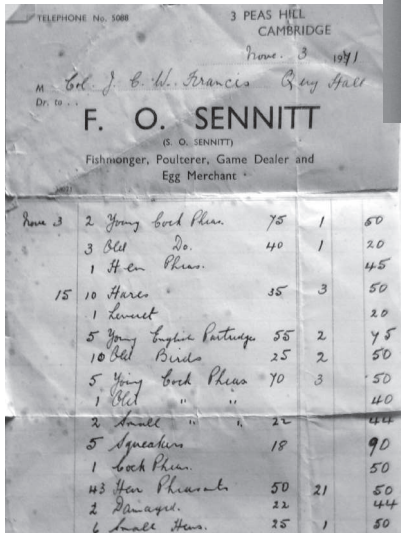 TELEPHONE No. 5088
3 PEAS HILL
CAMBRIDGE
Nove. 3 1971
M Col. J. C. W. Francis Quy Hall
Dr. to . .
F. O. SENNITT
(S. O. SENNITT)
Fishmonger, Poulterer, Game Dealer and
Egg Merchant
Nove 3 2 Young Cock Pheas. 75 1 50
3 Old Do. 40 1 20
1 Hen Pheas. 45
15 10 Hares 35 3 50
1 Leveret 20
5 Young English Partridges 55 2 75
10 Old Birds 25 2 50
5 Young Cock Pheas 70 3 50
1 Old " " 40
2 Small " " 22 44
5 Squeakers 18 90
1 Cock Pheas. 50
43 Hen Pheasants 50 21 50
2 Damaged. 22 44
6 Small Hens. 25 1 50